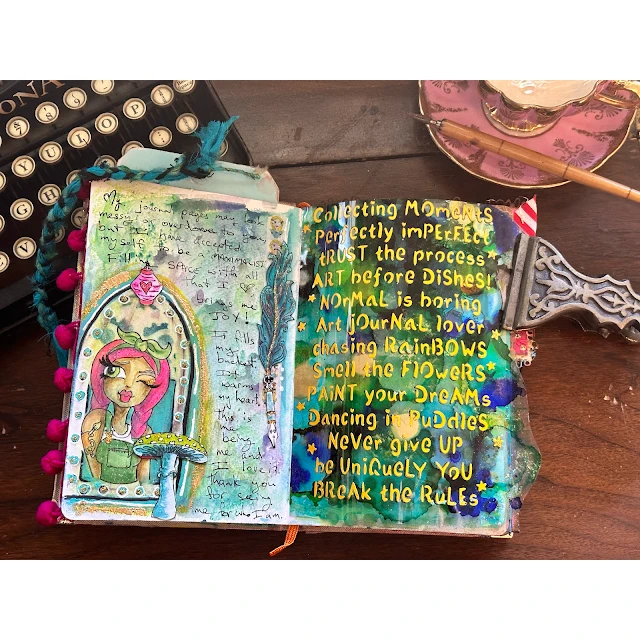 ONA
Y U L O P
G H
My journal pages may look
messy or overdone to you
but I have accepted
myself to be a MAXIMALIST
Filling space with all
that I ♡
brings me
JOY!
It fills
my
bucket
It
warms
my heart
this is
me
being
me and
I love it
thank you
for seeing
me for who I am.
Collecting MOmeNtS
Perfectly imPErFECt
tRUST the process
ARt before DiSHeS!
NOrMaL is boring
Art jOUrNaL lover
chasing RainBOWS
Smell the FlOWeRS
PAiNT your DreAMs
Dancing in PuDdleS
NeVer giVe UP
be UniQUeLY YoU
BReAk the RuLEs